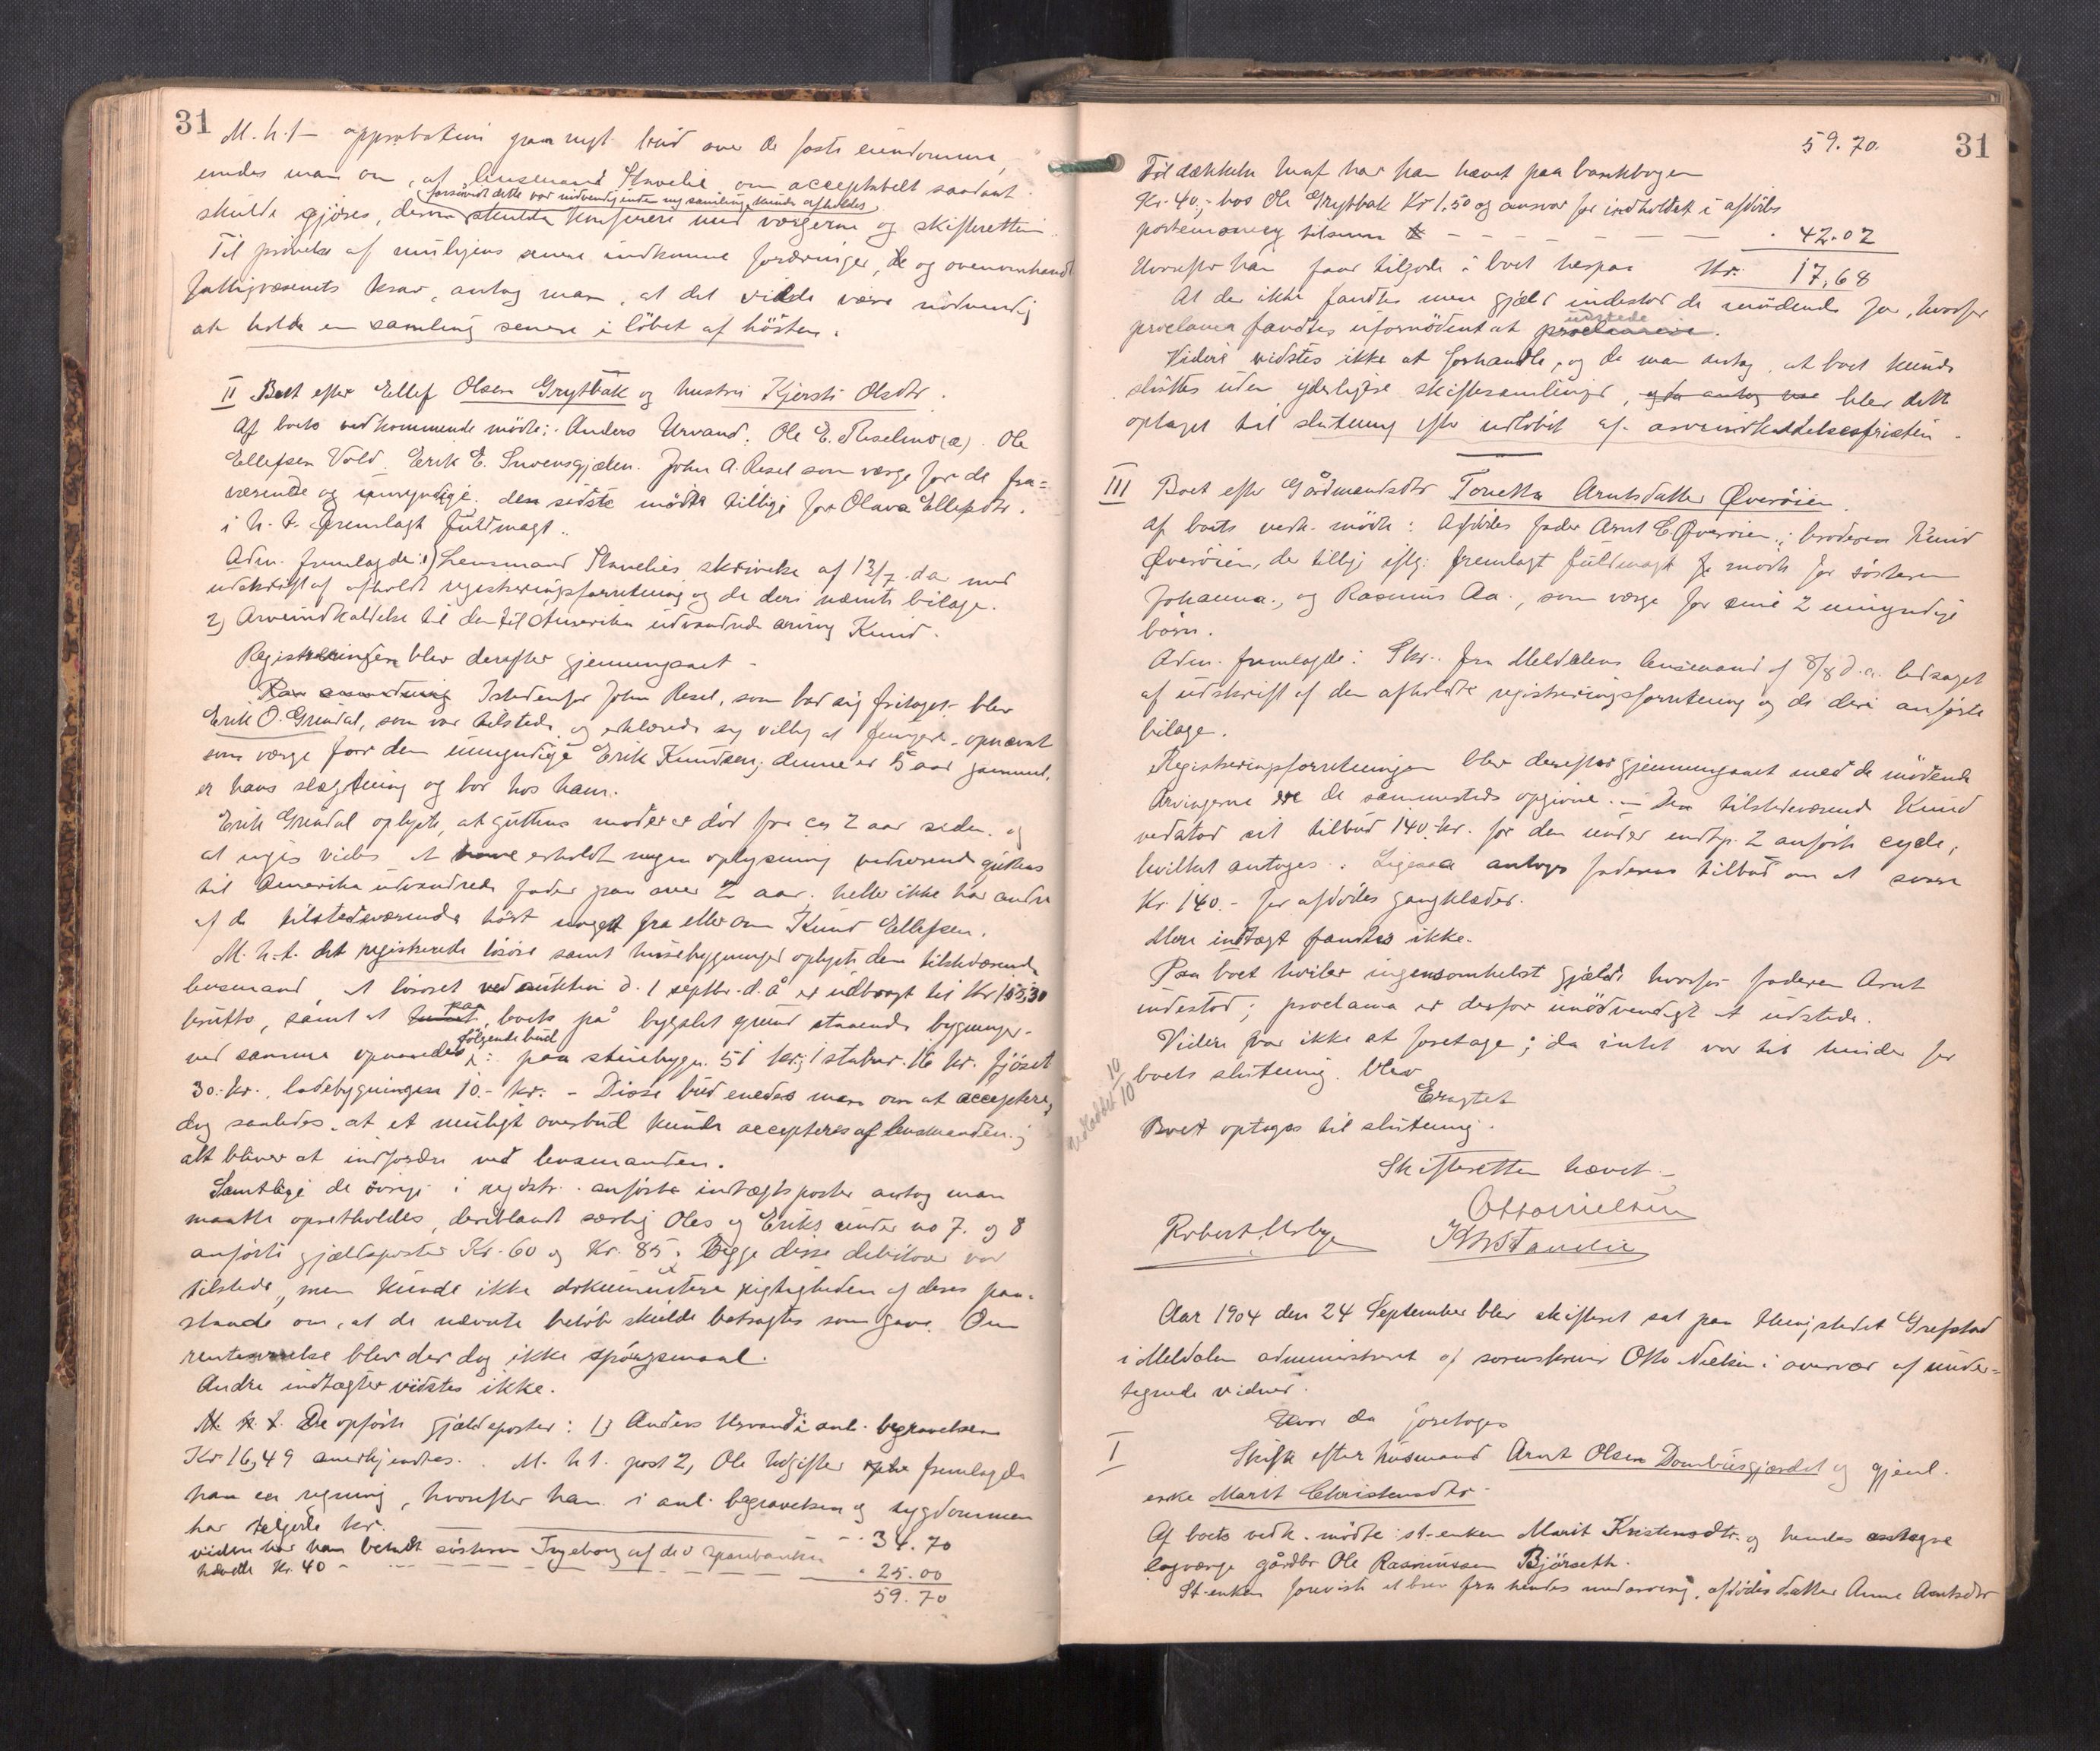 31
M.h.t. approbation paa nyt bud over de faste eiendomme,
enedes man om, at lensmand Stavelie om acceptabelt saadant
forsåvidt dette var nødvendig inden ny samling kunde afholdes
skulde gjøres, derom skulde konferere med vergerne og skifteretten.
Til prøvelse af muligens senere indkomne fordringer, og ovenomhandl.
fattigvæsenets krav, antog man, at det vilde være nødvendig
at holde en samling senere i løbet af høsten.
II Boet efter Ellef Olsen Grytbak og hustru Kjersti Olsdtr.
Af boets vedkommende mødte: Anders Urvand, Ole E. Reselmo(a). Ole
Ellefsen Vold. Erik E. Svensgjælen. John A. Resel som værge for de fra=
værende og umyndige. den sidste mødte tillige for Olava Ellefsdtr.
i h.t. fremlagt fuldmagt.
Adm. fremlagde: 1) Lensmand Stavelies skrivelse af 13/7 d.a. med
udskrift af afholdt registreringsforretning og de deri nævnte bilage.
2) Arveindkaldelse til den til Amerika udvandrede arving Knud.
Registreringen blev derefter gjennemgaaet -
Paa anmodning Istedenfor John Resel, som bad sig fritaget, blev
Erik O. Grindal, som var tilstede, og erklærede sig villig at fungere, opnævnt
som værge for den umyndige Erik Knudsen; denne er 5 aar gammel,
er hans slægtning og bor hos ham.
Erik Grindal oplyste, at guttens moder er død for ca 2 aar siden, og
at ingis vides at have erholdt nogen oplysning vedrørende guttens
til Amerika udvandrede fader paa over 2 aar. heller ikke har andre
af de tilstedeværende hørt noget fra eller om Knud Ellefsen.
M.h.t. det registrerede løsøre samt husebygninger oplyste den tilstedeværende
lensmand, at løsøret ved auktion d. 1 septbr. d.å. er udbragt til Kr 155,30
brutto, samt at paa boets på bygslet grund staaende bygninger
følgende bud
ved samme opnaaedes: paa stuebygn. 51 kr; 1 stabur. 16 kr. fjøset
30.- kr., ladebygningen 10.- kr. - Disse bud enedes man om at acceptere,
dog saaledes, at et muligt overbud kunde accepteres af lensmanden;
alt bliver at indfordre ved lensmanden.
Samtlige de øvrige i registr. anførte indtægtsposter antog man
maatte opretholdes, deriblandt særlig Oles og Eriks under no 7. og 8
anførte gjældsposter Kr. 60 og Kr. 85; begge disse debitorer var
tilstede, men kunde ikke dokumentere rigtigheden af deres paa=
stande om, at de nævnte beløb skulde betragtes som gave. Om
rentesvarelse blev der dog ikke spørgsmaal.
Andre indtægter vidstes ikke.
M. h. t. De opførte gjældsposter: 1) Anders Urvand i anl. begravelsen
Kr 16,49 anerkjendtes. M.h.t. post 2, Ole udgifter fremlagde
han en regning, hvorefter han i anl. begravelsen og sygdommen
har tilgode kr. 34.70
videre har han betalt søsteren Ingeborg af de i sparebanken
hævede Kr. 40 25.00
59.70
31
59.70.
Til dækkelse heraf har han hævet paa bankbogen
Kr. 40,- hos Ole Grytbak Kr 1.50 og ansvar for indholdet i afdødes
portemoney tilsammen 42.02
Hvorefter han faar tilgode i boet herpaa Kr. 17,68
At der ikke fandtes mere gjæld indestod de mødende for, hvorfor
udstede
proclama fandtes ufornødent at proclamere.
Videre vidstes ikke at forhandle, og da man antog, at boet kunde
sluttes uden yderligere skiftesamlinger, og da antog man blev dette
optaget til slutning efter udløbet af arveindkaldelsesfristen.
III Boet efter Gårdmandsdtr Tonetta Arntsdatter Øverøien.
af boets vedk. mødte: Afdødes fader Arnt E. Øverøien; broderen Knud
Øverøien, der tillige iflg. fremlagt fuldmagt mødte for søsteren
Johanna, og Rasmus Aa., som værge for sine 2 umyndige
børn.
Adm. fremlagde: Skr. fra Meldalens lensmand af 8/8 d.a. ledsaget
af udskrift af den afholdte registreringsforretning og de deri anførte
bilage.
Registreringsforretningen blev derefter gjennemgaaet med de mødende
Arvingerne ere de sammesteds opgivne. - Den tilstedeværende Knud
vedstod sit tilbud 140.- kr. for den under indtp. 2 anførte cycle,
hvilket antoges. Ligesaa antoges faderens tilbud om at svare
Kr. 140.- for afdødes gangklæder.
Mere indtægt fandtes ikke.
Paa boet hviler ingensomhelst gjæld, hvorfor faderen Arnt
indestod; proclama er derfor unødvendigt at udstede.
Videre var ikke at foretage; da intet var til hinder for
boets slutning. blev
10/10
Eragtet
Boet optages til slutning.
Skifteretten hævet -
Otto Nielsen
Robert Usbye
Aar 1904 den 24 September blev skifteret sat paa thingstedet Grefstad
i Meldalen administreret af sorenskriver Otto Nielsen i overvær af under=
tegnede vidner.
Hvor da foretoges
I Skifte efter husmand Arnt Olsen Dombusgjærdet og gjenl.
enke Marit Christensdtr.
Af boets vedk. mødte: st-enken Marit Kristensdtr. og hendes antagne
lagværge gårdbr Ole Rasmussen Bjørseth.
St-enken foreviste et brev fra hendes medarving, afdødes datter Anne Arntsdtr